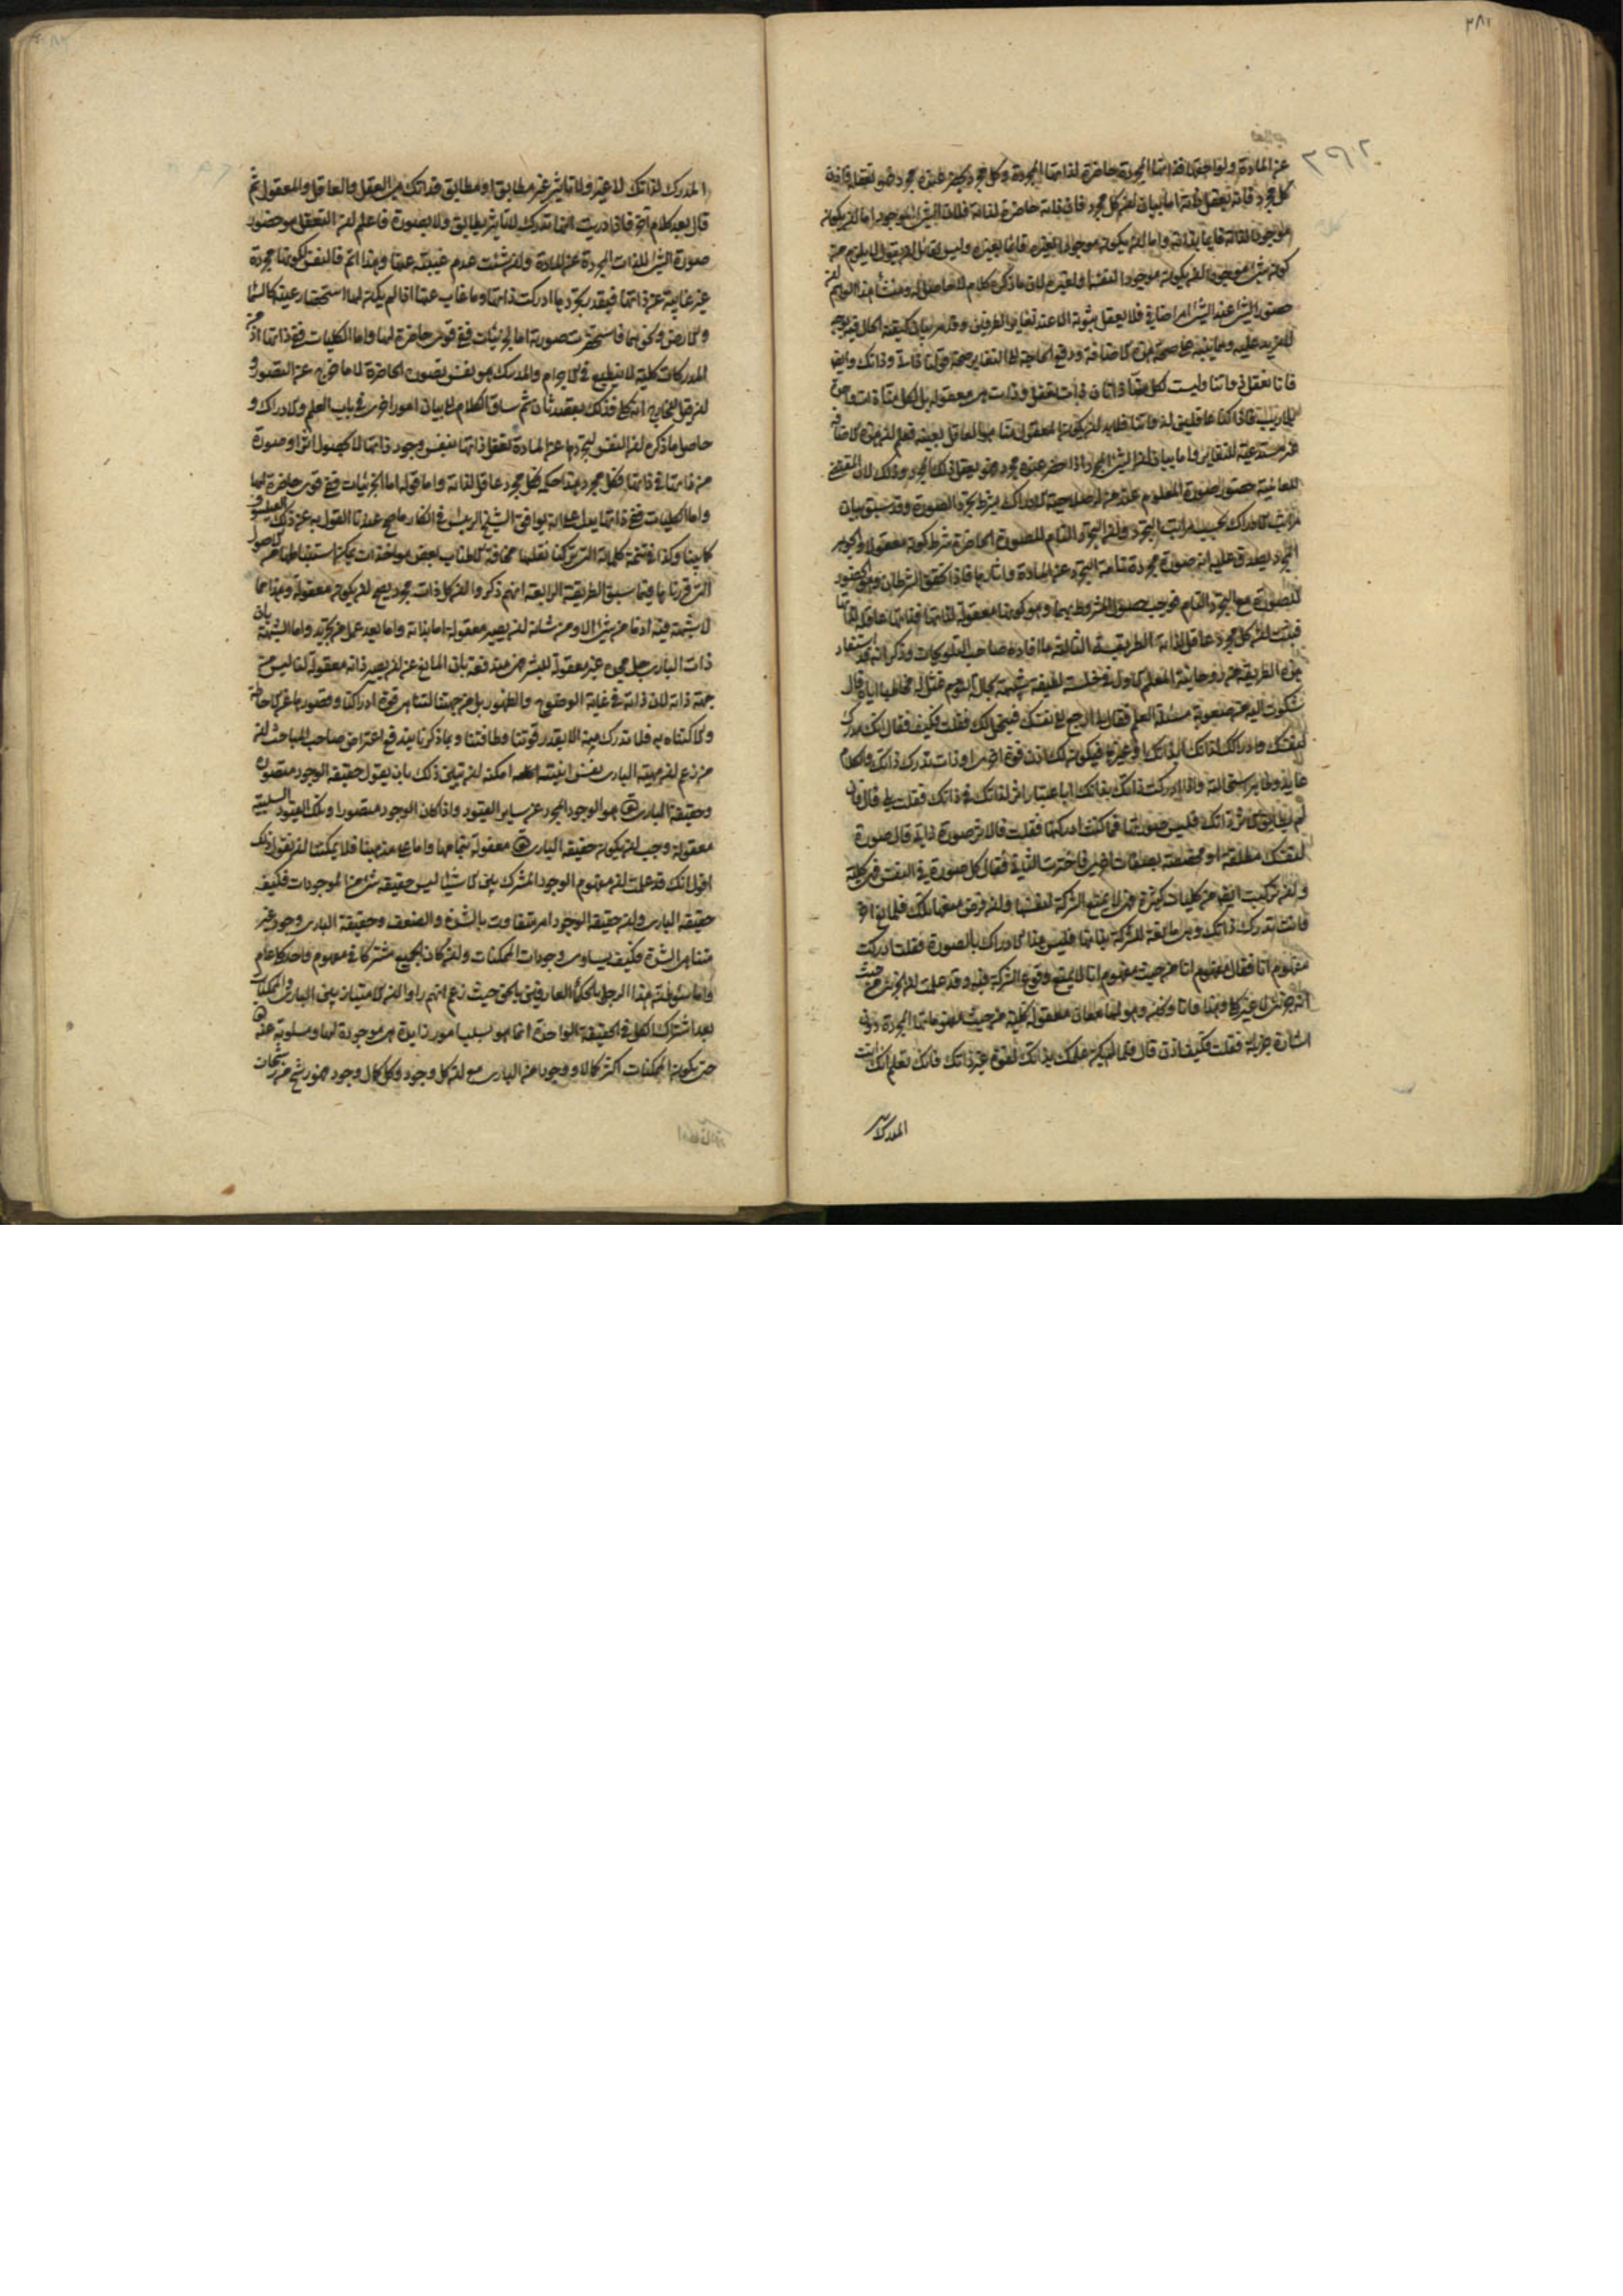 ٢٨١
٢٩٢
عن المادة ولواحقها فذاتها المجردة حاضرة لذاتها المجردة وكل مجرد يحضر عنده مجرد فهو يعقله فاذن
كل مجرد فانه يعقل ذاته اما بيان ان كل مجرد فان ذاته حاضرة لذاته فلان الشئ الموجود اما ان يكون
موجودا لذاته قائما بذاته واما ان يكون موجودا لغيره قائما بغيره وليس لقائل ان يقول لا يلزم من
حضور الشئ عند الشئ امر اضافي فلا يعقل ثبوته الا عند تغاير الطرفين وقد مر بيان كيفية الحال فيه
فانا نعقل ذواتنا وليست لكل منا ذاتان ذات تعقل وذات هي معقولة بل لكل منا ذات واحدة
بلا ريب فاذا كنا عاقلين لذواتنا فلا بد ان يكون المعقول منا هو العاقل بعينه فعلم ان هذه الاضافة
غير مستدعية للتغاير واما بيان ان الشئ المجرد اذا حضر عنده مجرد فهو يعقل ذلك المجرد وذلك لان المقتضى
للعالمية حضور صورة المعلوم عند من له صلاحية الادراك بشرط تجرد الصورة وقد سبق بيان
مراتب الادراك بحسب مراتب التجرد وان التجرد التام للصورة الحاضرة شرط كونه معقولا والجوهر
المجرد يصدق عليه انه صورة مجردة تامة التجرد عن المادة واثارها فاذا تحقق الشرطان وهو الحضور
للصورة مع التجرد التام فوجب حصول المشروط بهما وهو كونها معقولة لذاتها فذاتها عاقلة لذاتها
فثبت ان كل مجرد عاقل لذاته الطريقة الثالثة ما افاده صاحب التلويحات وذكر انه قد استفاد
هذه الطريقة من روحانية المعلم الاول في خلسة لطيفة شبيهة بحالة النوم تمثل له مخاطبا اياه قال
شكوت اليه من صعوبة مسئلة العلم فقال لي ارجع الى نفسك فينحل لك فقلت وكيف فقال انك مدرك
لنفسك فادراكك لذاتك ابذاتك او غيرها فيكون لك اذن قوة اخرى او ذات تدرك ذاتك والكلام
عايد وظاهر استحالته واذا ادركت ذاتك بذاتك ابا عتبار اثر لذاتك في ذاتك فقلت بلى قال فان
لم يطابق الاثر ذاتك فليس صورتها فما كنت ادركتها فقلت فالاثر صورة ذاتي قال صورة
لنفسك مطلقة او مخصصة بصفات اخرى فاخترت الثاني فقال كل صورة في النفس فهي كلية
وان تركبت ايضا من كليات كثيرة فهي لا يمنع الشركة لنفسها وان فرض منعها تلك فلمانع اخر
وانت تدرك ذاتك وهي مانعة للشركة بذاتها فليس هذا الادراك بالصورة فقلت ادركت
مفهوم انا فقال مفهوم انا من حيث مفهوم انا لا يمنع وقوع الشركة فيه وقد علمت ان الجزئي من حيث
انه جزئي لا غير كلي وهذا وانا ونحن وهو لها معان معقولة كلية من حيث مفهوماتها المجردة دون
اشارة جزئية فقلت فكيف اذن قال فلما لم يكن علمك بذاتك بقوة غير ذاتك فانك تعلم انك انت
المدرك
المدرك لذاتك لا غير ولا باثر غير مطابق او مطابق فذاتك هي العقل والعاقل والمعقول ثم
قال بعد كلام اخر فاذا دريت انها تدرك لا باثر يطابق ولا بصورة فاعلم ان التعقل هو حضور
صورة الشئ للذات المجردة عن المادة وان شئت عدم غيبته عنها وهذا اتم فالنفس لكونها مجردة
غير غائبة عن ذاتها فبقدر تجردها ادركت ذاتها وما غاب عنها اذا لم يكن لها استحضار عينه كالسماء
والارض ونحوهما فاستحضرت صورته اما الجزئيات ففي قوى حاضرة لها واما الكليات ففي ذاتها اذ من
المدركات كلية لا ينطبع في الاجرام والمدرك هو نفس الصورة الحاضرة لا ما خرج عن التصور و
ان قيل للخارج انه مدرك فذلك بقصد ثان ثم ساق الكلام الى بيان امور اخرى في باب العلم والادراك و
حاصل ما ذكره ان النفس لتجردها عن المادة تعقل ذاتها بنفس وجود ذاتها لا بحصول اثر او صورة
من ذاتها في ذاتها فكل مجرد هذا حكمه فكل مجرد عاقل لذاته واما قوله اما الجزئيات ففي قوى حاضرة لها
واما الكليات ففي ذاتها يدل على انه يوافق الشيخ الرئيس في انكار ما صح عندنا القول به عن ذلك الفيلسوف
كما بينا وكذا في تتمة كلماته التي تركنا نقلها مخافة الاطناب بعض مواخذات يمكن استنباطها من الاصول
التي قررناها فيما سبق الطريقة الرابعة انهم ذكروا ان كل ذات مجرد يصح ان يكون معقولة وهذا مما
لا شبهة فيه اذ ما من شئ الا ومن شانه ان يصير معقولة اما بذاته واما بعد عمل من تجريد واما الشبهة بان
ذات الباري جل مجده غير معقولة للبشر فمندفعة بان المانع عن ان يصير ذاته معقولة لنا ليس من
جهة ذاته لان ذاته في غاية الوضوح والظهور بل من جهتنا لتناهي قوة ادراكنا وقصورها عن الاحاطة
والاكتناه به فلا ندرك منه الا بقدر قوتنا وطاقتنا وبما ذكرنا يندفع اعتراض صاحب المباحث ان
من زعم ان مهية الباري نفس انيته امكنه ان يبين ذلك بان يقول حقيقة الوجود متصورة
وحقيقة الباري هو الوجود المجرد عن ساير القيود واذا كان الوجود متصورا وتلك القيود السلبية
معقولة وجب ان يكون حقيقة الباري معقولة بتمامها واما على مذهبنا فلا يمكننا ان نقول ذلك
اقول انك قد علمت ان مفهوم الوجود المشترك بين الاشياء ليس حقيقة شئ من الموجودات فكيف
حقيقة الباري وان حقيقة الوجود امر متفاوت بالشدة والضعف وحقيقة الباري وجود غير
متناهي الشدة فكيف يساوي وجودات الممكنات وان كان الجميع مشتركا في مفهوم واحد كلي عام
واما سوء ظن هذا الرجل بالحكماء العارفين بالحق حيث زعم انهم راوا ان الامتياز بين الباري والممكنات
بعد اشتراك الكل في الحقيقة الواحدة انما هو بسلب امور زايدة هي موجودة لها ومسلوبة عنه
حتى يكون الممكنات اكثر كمالا ووجودا من الباري مع ان كل وجود وكل كمال وجود فهو رشح من رشحات